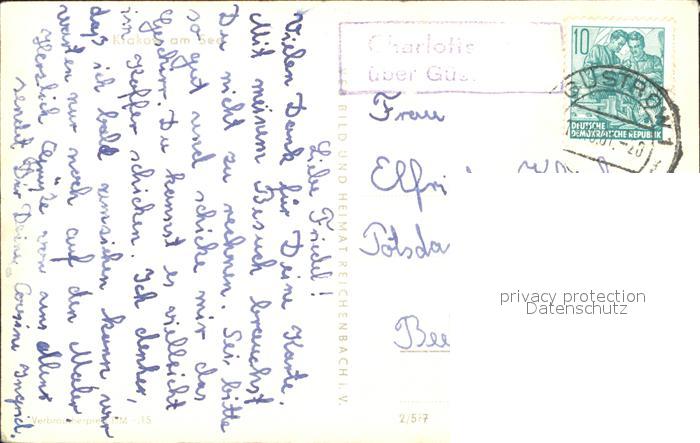 Krakow am See
Liebe Friedel!
Vielen Dank für Deine Karte.
Mit meinem Besuch brauchst
Du nicht zu rechnen. Sei bitte
so gut und schicke mir das
Geschirr. Du kannst es vielleicht
in Koffer schicken. Ich denke,
daß ich bald umziehen kann wir
warten nur noch auf den Maler
Herzlich Grüße von uns allen
sendet Dir Deine Cousine Ingrid.
Verbraucherpreis DM -.15
BILD UND HEIMAT REICHENBACH i. V.
2/577
Charlotte
über Güs
10
DEUTSCHE
DEMOKRATISCHE REPUBLIK
GÜSTROW 1
Frau
Elfri
Potsda
Bee
privacy protection
Datenschutz